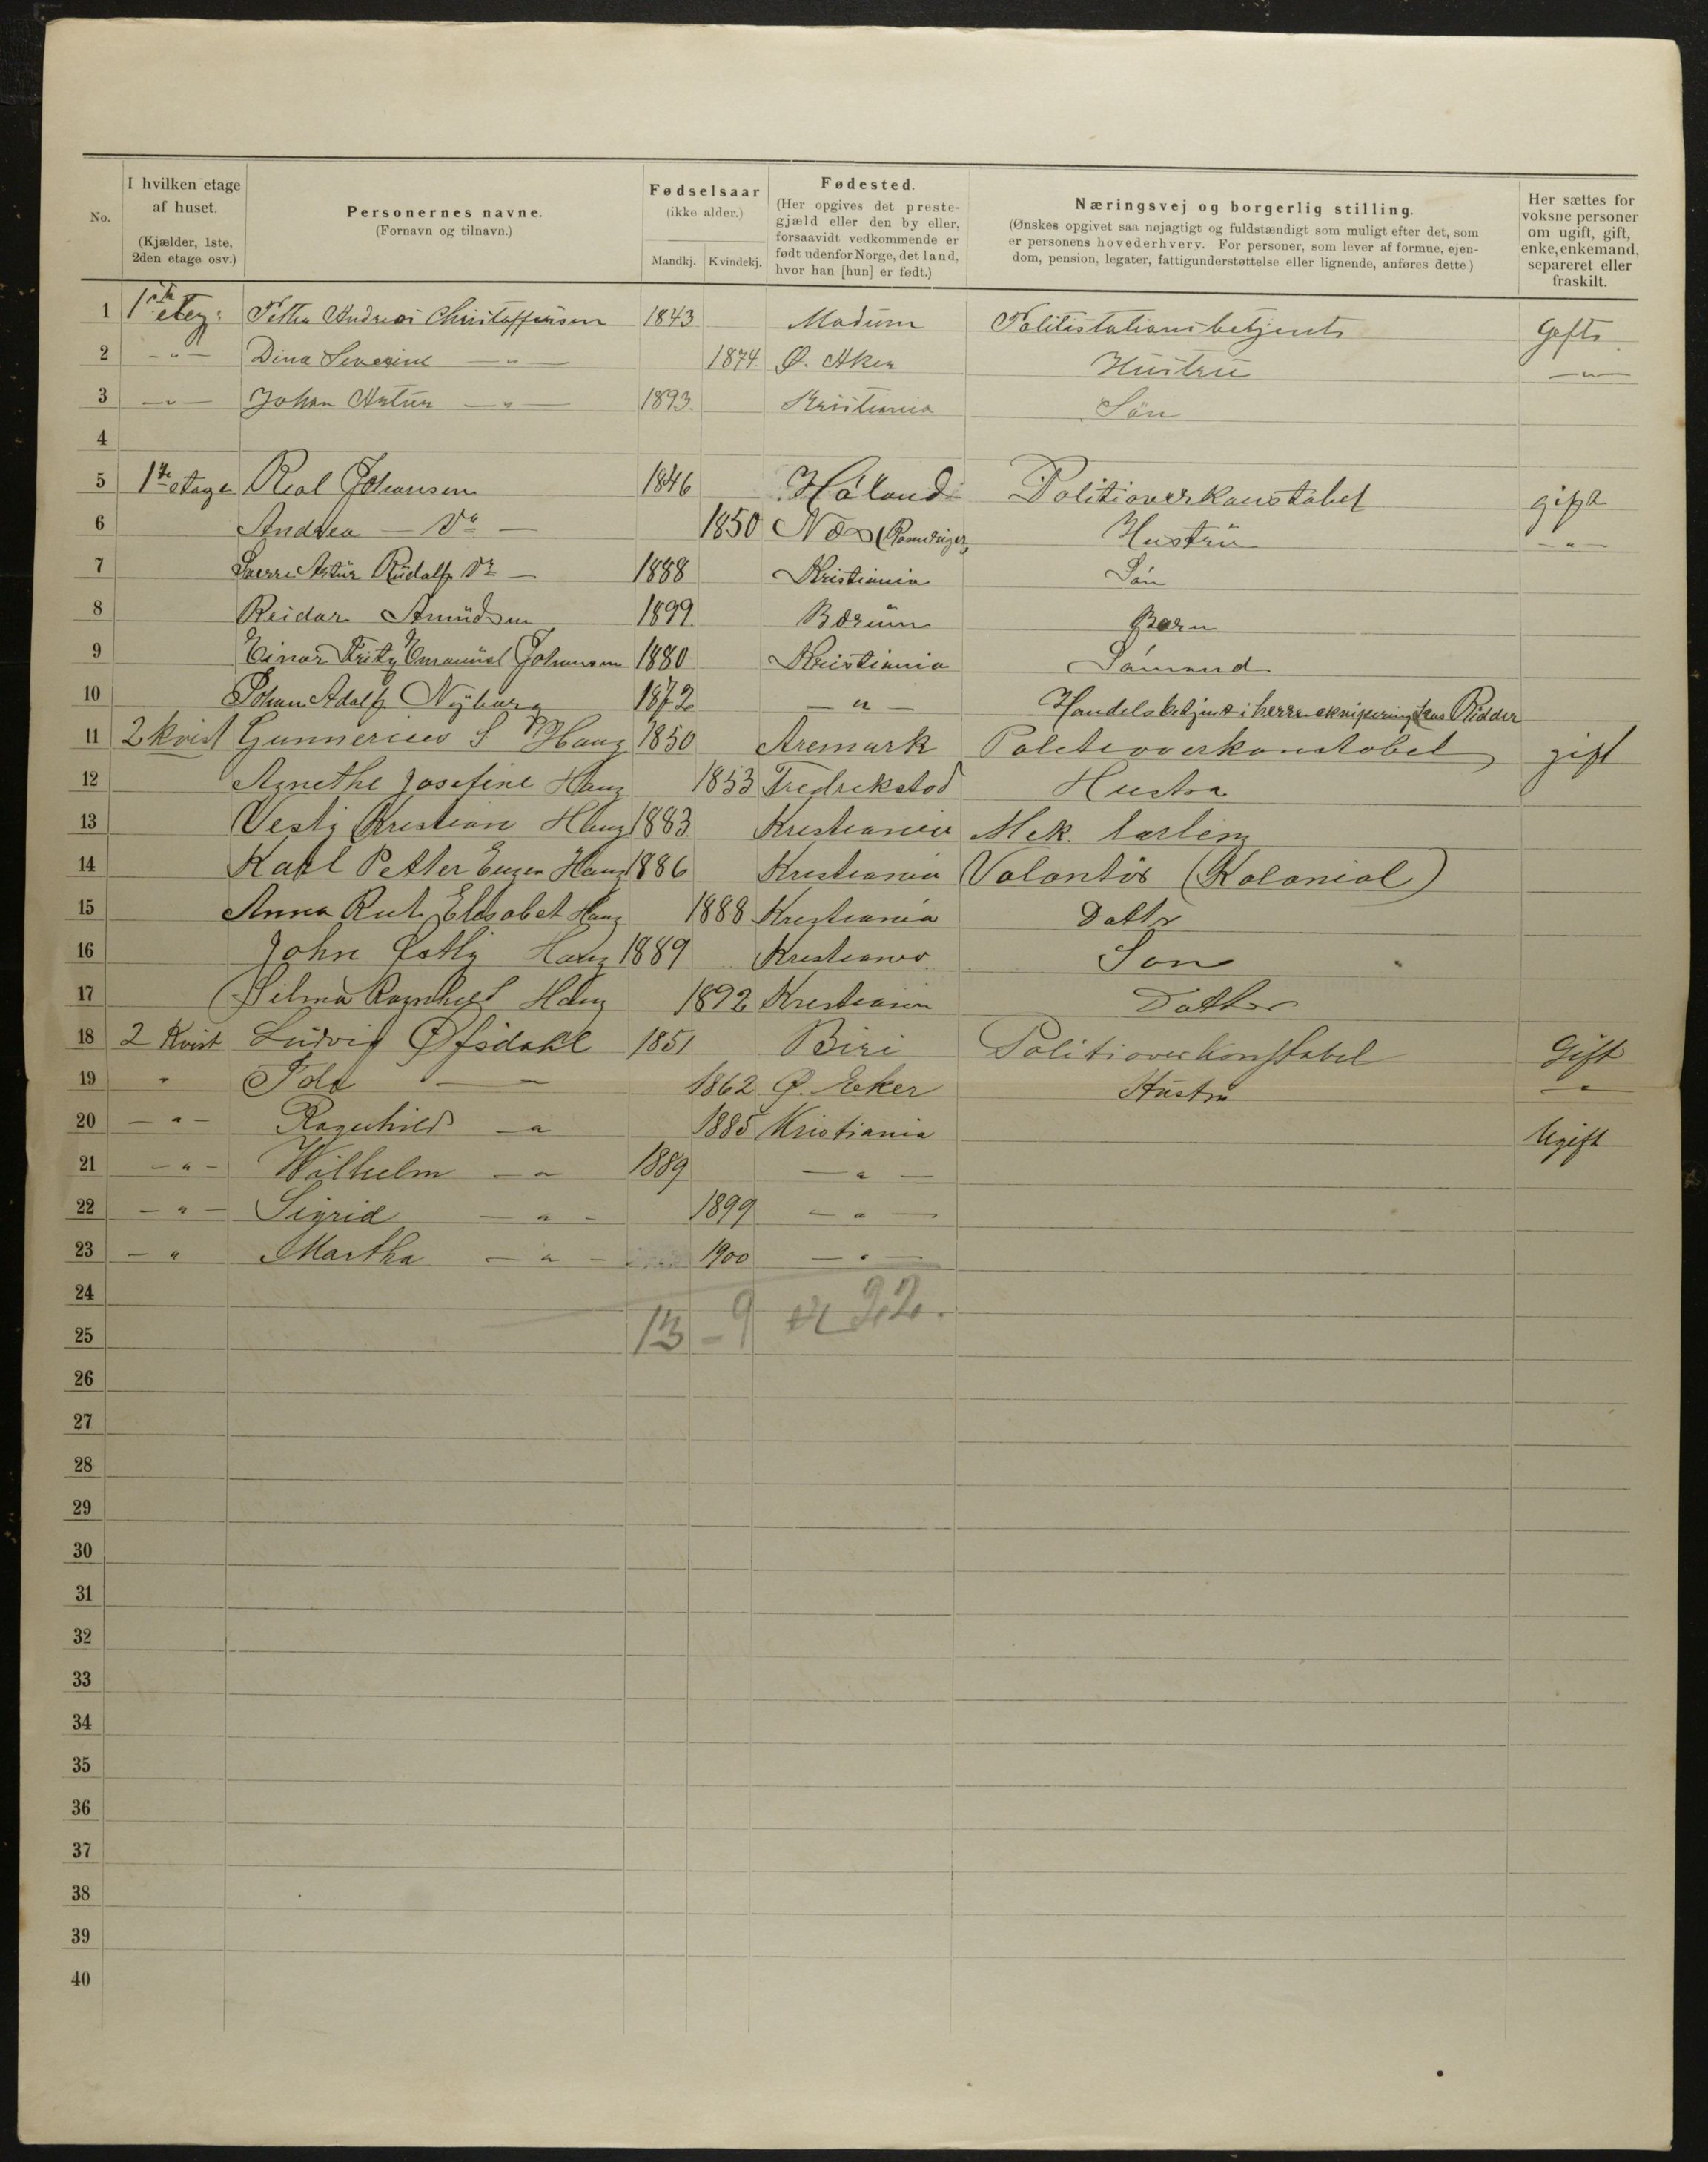 No.
I hvilken etage af huset. (Kjælder, 1ste, 2den etage osv.)
Personernes navne. (Fornavn og tilnavn.)
Fødselsaar (ikke alder.) Mandkj. Kvindekj.
Fødested. (Her opgives det prestegjæld eller den by eller, forsaavidt vedkommende er født udenfor Norge, det land, hvor han [hun] er født.)
Næringsvej og borgerlig stilling. (Ønskes opgivet saa nøjagtigt og fuldstændigt som muligt efter det, som er personens hovederhverv. For personer, som lever af formue, ejendom, pension, legater, fattigunderstøttelse eller lignende, anføres dette)
Her sættes for voksne personer om ugift, gift, enke, enkemand, separeret eller fraskilt.
1 1ste etag: Petter Andreas Christoffersen 1843 Modum Politistationsbetjent Gift
2 -"- Dina Severine -"- 1874 Ø. Aker Hustru -"-
3 -"- Johan Artur -"- 1893. Kristiania Søn
4
5 1te etage Johansen 1846 Høland Politioverkonstabel gift
6 Andrea - Do - 1850 Næs (Romerriget) Hustru -"-
7 Artur Rudolf Do - 1888 Kristiania Søn
8 Reidar Amundsen 1899. Bærum Barn
9 Einar Fritz Emanuel Johansen 1880 Kristiania Sømand
10 Johan Adolf Nyborg 1872 -"- Handelsbetjent i herreekvipering hos Ridder
11 2 kvist Gunnerius S Haug 1850 Aremark Politioverkonstabel gift
12 Agnethe Josefine Haug 1853 Fredrekstad Hustru
13 Kristian Haug 1883 Kristiania Mek. lærling
14 Karl Petter Eugen Haug 1886 Kristiania Volontør (Kolonial)
15 Anna Rut Elisabet Haug 1888 Kristiania Datter
16 John Østby Haug 1889 Kristiania Søn
17 Silma Ragnhild Haug 1892 Kristiania Datter
18 2 Kvist Ludvig Øfsdahl 1851 Biri Politioverkonstabel Gift
19 " Ida -"- 1862 Ø. Eker Hustru -"-
20 -"- Ragnhild -" 1885 Kristiania Ugift
21 -"- Wilhelm -" 1889 -"-
22 -"- Sigrid -"- 1899 -"-
23 -" Martha -"- 1900 -"-
24
25 13 - 9 22.
26
27
28
29
30
31
32
33
34
35
36
37
38
39
40